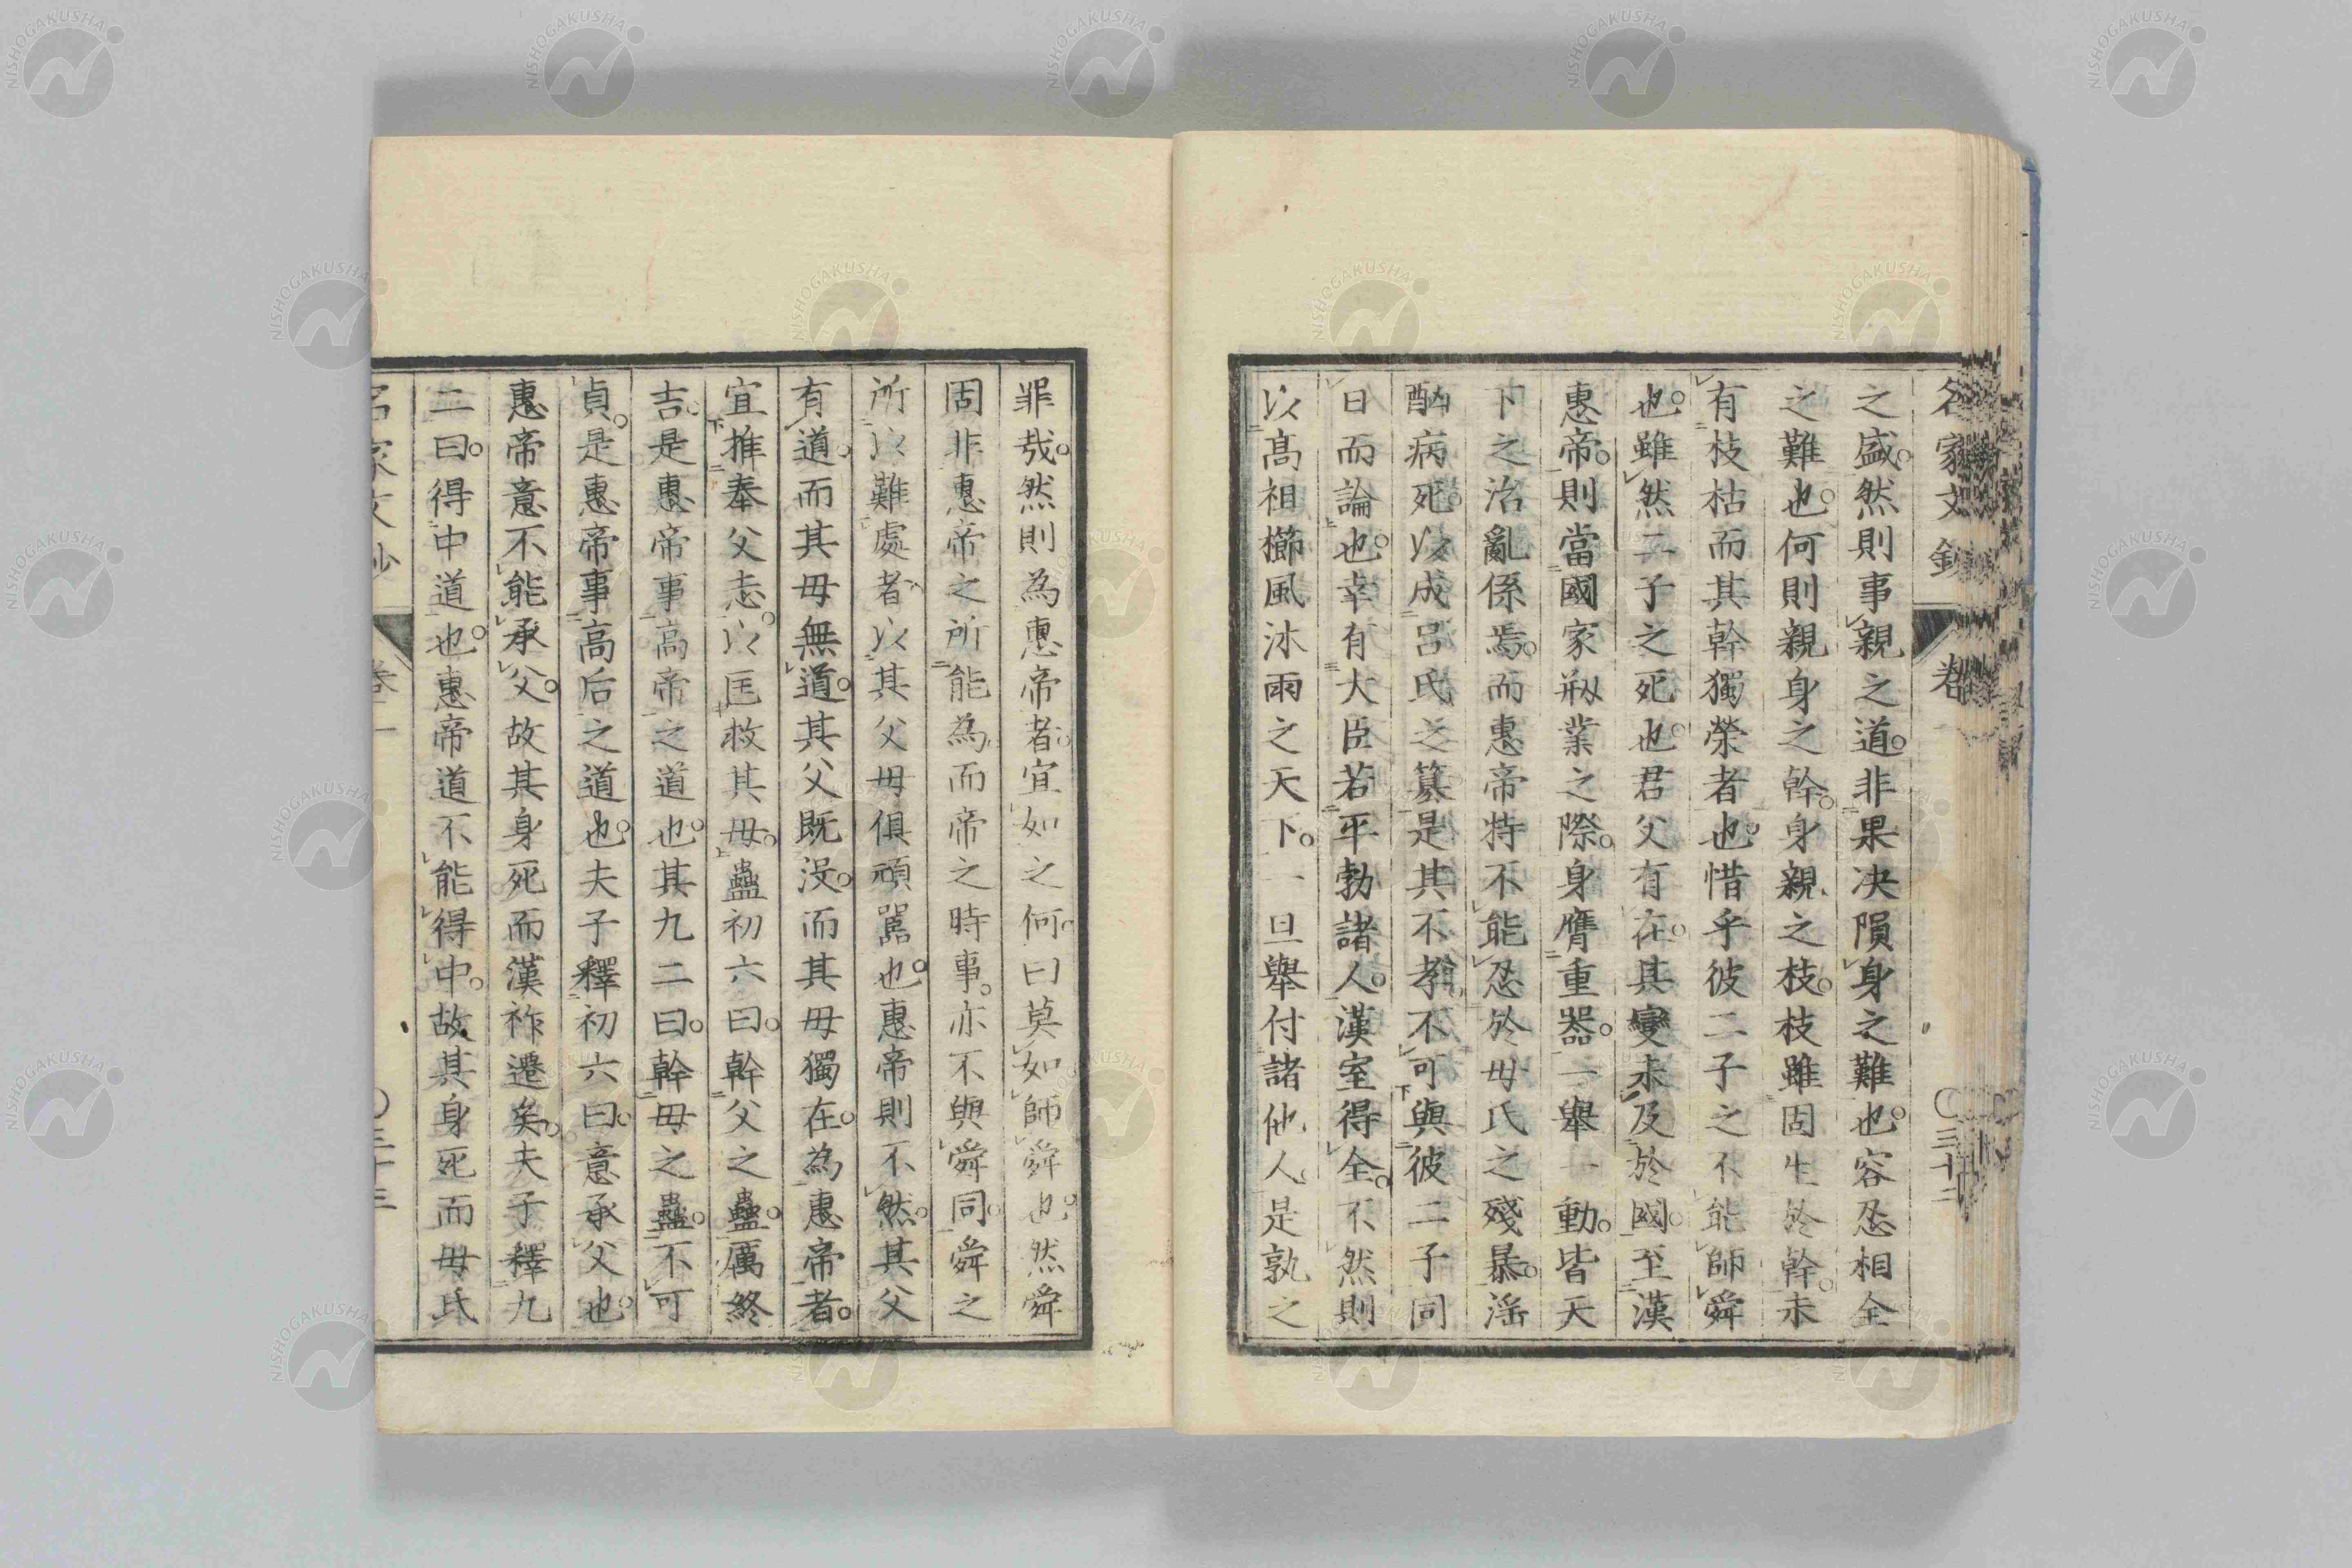 名家文鈔 卷一 〇三十二
之盛。然則事親之道。非果決隕身之難也。容忍相全
之難也。何則親身之幹。身親之枝。枝雖固生於幹。未
有枝枯而其幹獨榮者也。惜乎彼二子之不能師舜
也。雖然二子之死也。君父有在。其變未及於國。至漢
惠帝。則當國家剏業之際。身膺重器。一舉一動。皆天
下之治亂係焉。而惠帝特不能忍於毋氏之殘暴。淫
酗病死。以成呂氏之簒。是其不孝。不可與彼二子同
日而論也。幸有大臣若平勃諸人。漢室得全。不然則
以髙祖櫛風沐雨之天下。一旦舉付諸他人。是孰之
罪哉。然則為惠帝者。宜如之何。曰莫如師舜也。然舜
固非惠帝之所能為。而帝之時事。亦不與舜同。舜之
所以難處者。以其父毋俱頑嚚也。惠帝則不然。其父
有道。而其毋無道。其父既沒。而其毋獨在。為惠帝者。
宜推奉父志。以匡救其毋。蠱初六曰。幹父之蠱。厲終
吉。是惠帝事高帝之道也。其九二曰。幹毋之蠱。不可
貞。是惠帝事高后之道也。夫子釋初六曰。意承父也。
惠帝意不能承父。故其身死而漢祚遷矣。夫子釋九
二曰。得中道也。惠帝道不能得中。故其身死而毋氏
名家文鈔 卷一 〇三十三
NISHOGAKUSHA